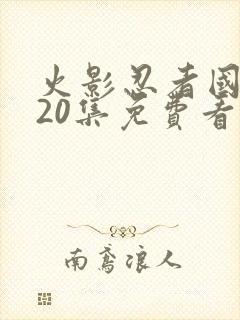 火影忍者國
20集免費看
南鳶浪人